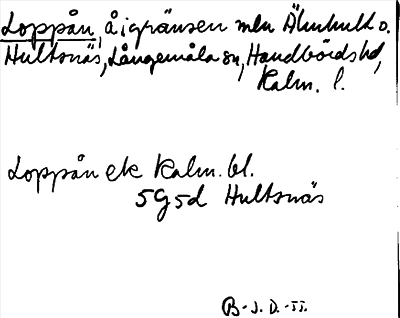 Loppån, å i gränsen mln Älmhult o.
Hultsnäs, Långemåla sn, Handbörds hd,
Kalm. l.
Loppån ek Kalm. bl.
5G5d Hultsnäs
B-J. D.-55.